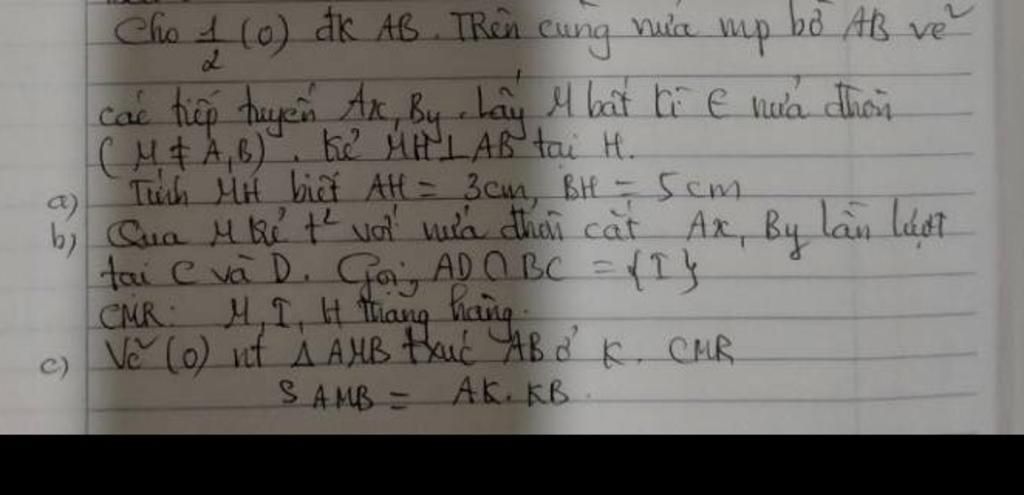 Cho 1/2 (O) đk AB. Trên cùng nửa mp bờ AB vẽ
các tiếp tuyến Ax, By. Lấy M bất kì ∈ nửa đtròn
(M ≠ A, B). Kẻ MH ⊥ AB tại H.
a) Tính MH biết AH = 3cm, BH = 5cm
b) Qua M kẻ t² với nửa đtròn cắt Ax, By lần lượt
tại C và D. Gọi AD ∩ BC = {I}
CMR: M, I, H thẳng hàng.
c) Vẽ (O) nt △AMB txuc AB ở K. CMR
S AMB = AK. KB.